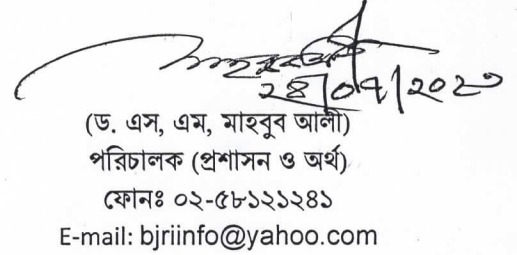 ২৪/০৭/২০২৩
(ড. এস, এম, মাহবুব আলী)
পরিচালক (প্রশাসন ও অর্থ)
ফোনঃ ০২-৫৮১২১২৪১
E-mail: bjriinfo@yahoo.com